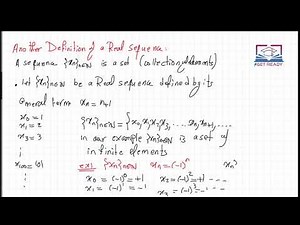 Another Definition of a Real sequence:
A sequence {xn}n∈N is a set (collection, elements)
#GET READY
• Let {xn}n∈N be a Real sequence defined by its
General term xn = n+1
x0 = 1
x1 = 2
x2 = 3
{xn}n∈N = {x0, x1, x2, x3, ... xn, xn+1, ...}
in our example {xn}n∈N is a set of
infinite elements
x100 = 101
ex1 {xn}n∈N xn = (-1)^n
x0 = (-1)^0 = +1
x1 = (-1)^1 = -1
x2 = (-1)^2 = +1
x3 = (-1)^3 = -1